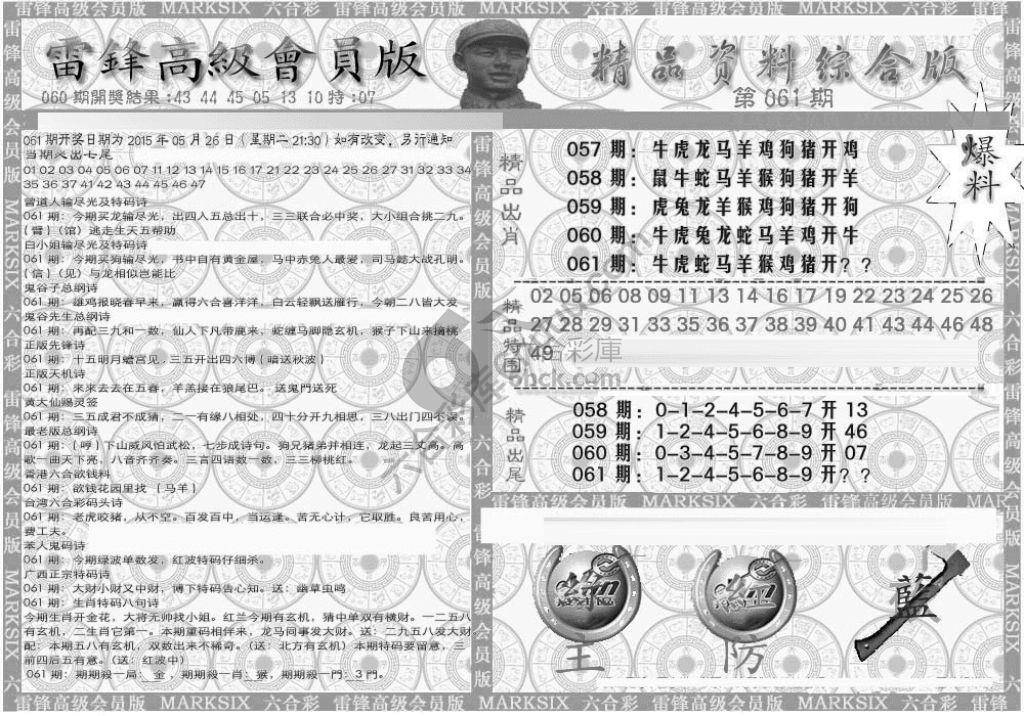 雷锋高级会员版 MARKSIX 六合彩 雷锋高级会员版 MARKSIX 六合彩 雷锋高级会员版 MARKSIX 六合彩 雷锋
雷鋒高級會員版
精品资料综合版
060期開獎結果:43 44 45 05 13 10特:07
第061期
061期开奖日期为2015年05月26日(星期二21:30)如有改变,另行通知
当期人出七尾
01 02 03 04 05 06 07 11 12 13 14 15 16 17 21 22 23 24 25 26 27 31 32 33 34
35 36 37 41 42 43 44 45 46 47
曾道人输尽光及特码诗
061期:今期买龙输尽光,出四人五总出十,三三联合必中奖,大小组合挑二九。
{臂}(馆)逃走生天五帮助
白小姐输尽光及特码诗
061期:今期买狗输尽光,书中自有黄金屋,马中赤兔人最爱,司马懿大战孔明。
{信}(见)与龙相似岂能比
鬼谷子总纲诗
061期:雄鸡报晓春早来,赢得六合喜洋洋,白云轻飘送雁行,今朝二八皆大发
鬼谷先生总纲诗
061期:再配三九和一数,仙人下凡带鹿来,蛇缠马脚隐玄机,猴子下山来摘桃
正版先锋诗
061期:十五明月蟾宫见.三五开出四六博{暗送秋波}
正版天机诗
061期:来来去去在五春,羊羔接在狼尾巴。送鬼門送死
黄大仙赐灵签
061期:三五成君不成猜,二一有缘八相处,四十分开九相思,三八出门四不误。
最老版总纲诗
061期:{哼}下山威风怕武松,七步成诗句。狗兄猪弟并相连,龙起三丈高。高
歌一曲天下亮,八音齐齐奏。三言四语数一数,三三柳桃红。
香港六合欲钱料
061期:欲钱花园里找 {马羊}
台湾六合彩码头诗
061期:老虎咬猪,从不空。百发百中,当运逢。苦无心计,它取胜。良苦用心,
费工夫。
本人鬼码诗
061期:今期绿波单数发,红波特码仔细杀。
广西正宗特码诗
061期:大财小财又中财,博下特码告心知。送:幽草虫鸣
061期:生肖特码八句诗
今期生肖开金花,大将无帅找小姐。红兰今期有玄机,猜中单双有横财。一二五八
有玄机,二生肖它第一。本期重码相伴来,龙马同事发大财。送:二九五八发大财
配:本期五八有玄机,双数出来不稀奇。(送:北方有玄机)本期特码要留意,三
前四后五有意。(送:红波中)
061期:期期殺一局:金,期期殺一肖:猴,期期殺一門:3門。
精品出肖
057期:牛虎龙马羊鸡狗猪开鸡
058期:鼠牛蛇马羊猴狗猪开羊
059期:虎兔龙羊猴鸡狗猪开狗
060期:牛虎兔龙蛇马羊鸡开牛
061期:牛虎蛇马羊猴鸡猪开??
爆料
精品特围
02 05 06 08 09 11 13 14 16 17 19 22 23 24 25 26
27 28 29 31 33 35 36 37 38 39 40 41 43 44 46 48
49
精品出尾
058期:0-1-2-4-5-6-7开13
059期:1-2-4-5-6-8-9开46
060期:0-3-4-5-7-8-9开07
061期:1-2-4-5-6-8-9开??
雷锋高级会员版 MARKSIX 六合彩 雷锋高级会员版 MARKSIX
主
防
藍
雷锋高级会员版 MARKSIX 六合彩 雷锋高级会员版 MARKSIX 六合彩 雷锋高级会员版 MARKSIX 六合彩 雷锋